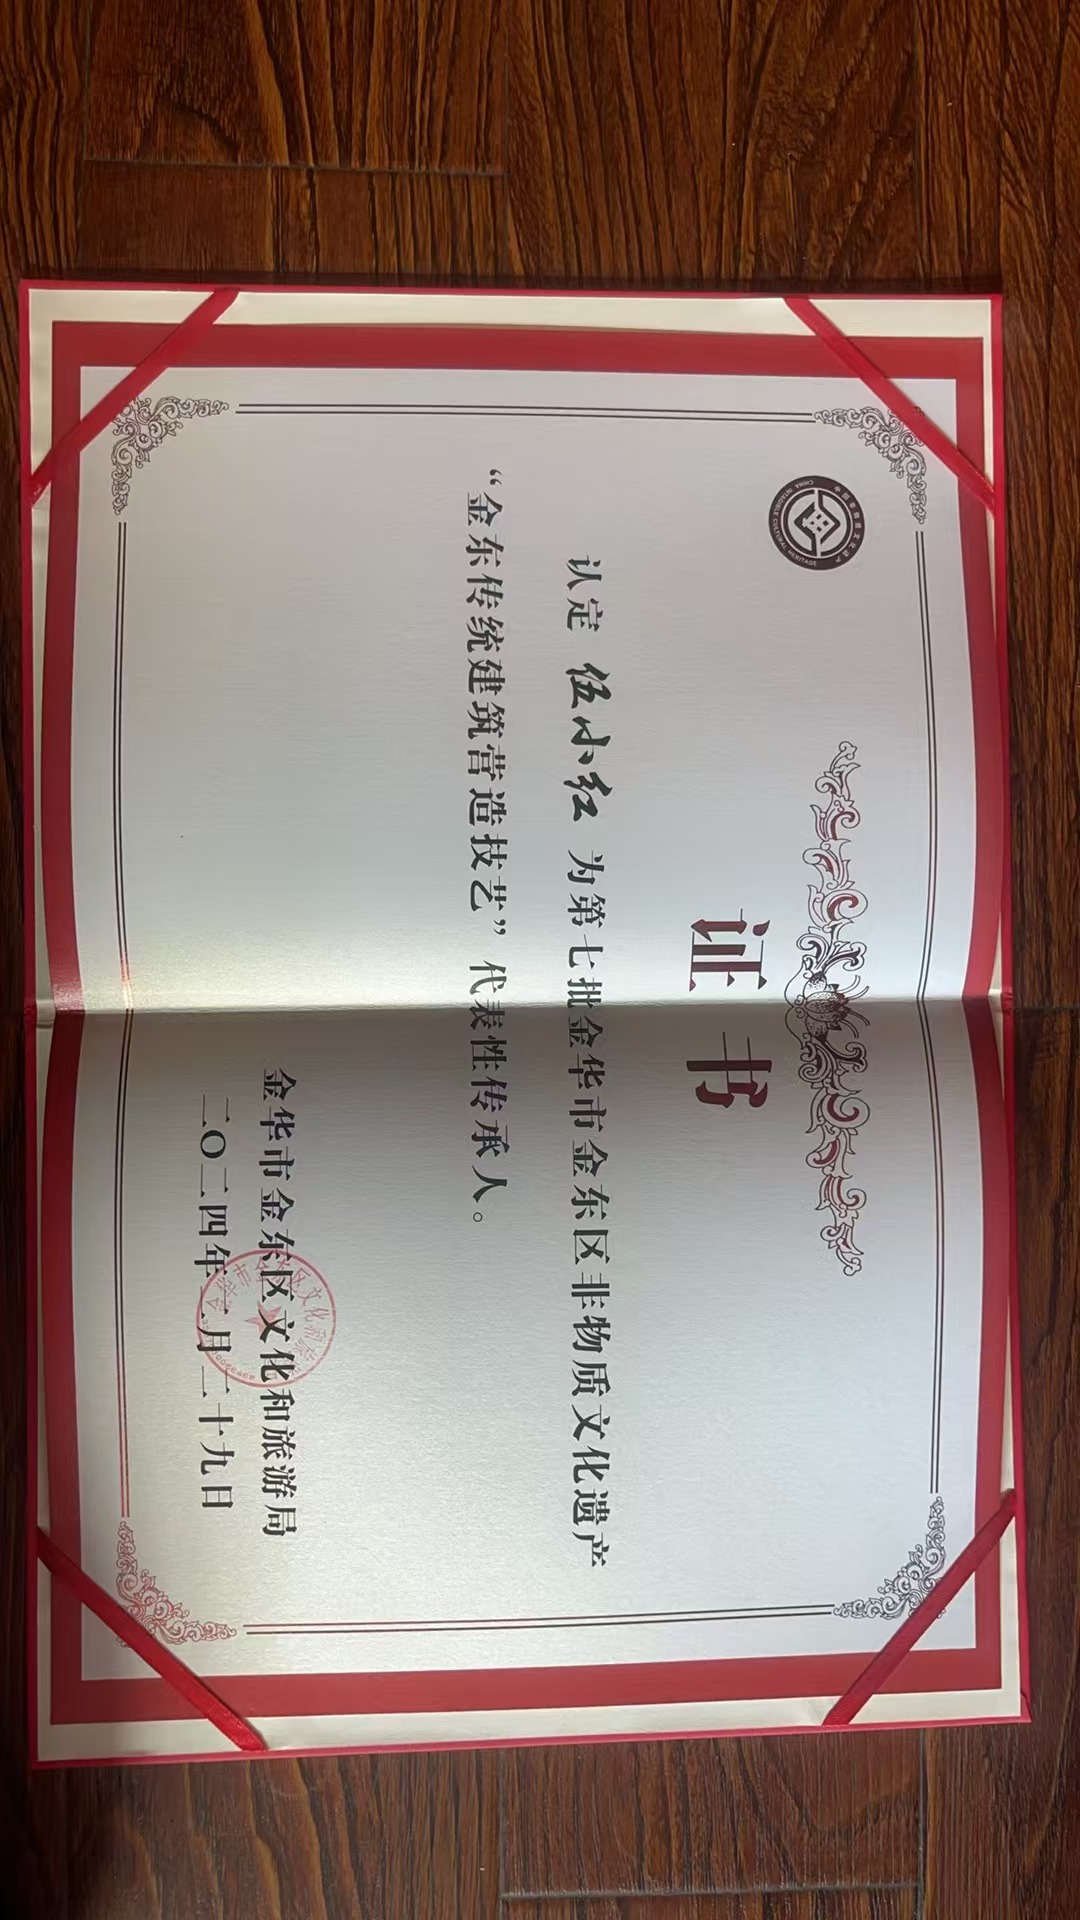 中国非物质文化遗产
CHINA INTANGIBLE CULTURAL HERITAGE
证书
认定 伍小红 为第七批金华市金东区非物质文化遗产
“金东传统建筑营造技艺”代表性传承人。
金华市金东区文化和旅游局
二〇二四年二月二十九日